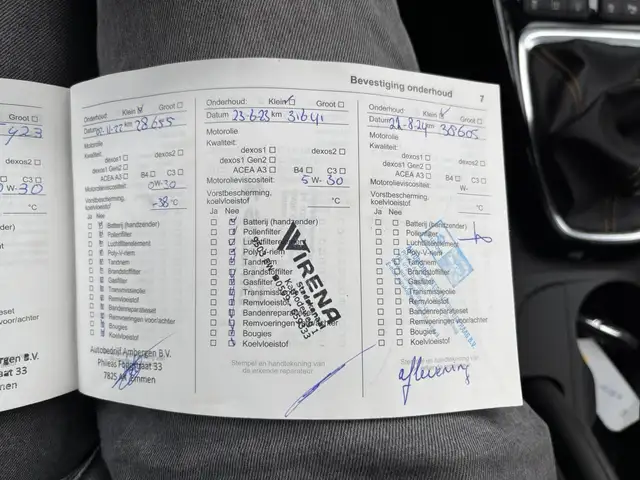 Bevestiging onderhoud
7
Groot
423
dexos2
C3
W-30
°C
/achter
gen B.V.
aat 33
men
Onderhoud: Klein Groot
Datum 22 km 28655
Motorolie
Kwaliteit:
dexos1 dexos2
dexos1 Gen2
ACEA A3 B4 C3
Motorolieviscositeit: 0W-30
Vorstbescherming,
koelvloeistof -38°C
Ja Nee
Batterij (handzender)
Pollenfilter
Luchtfilterelement
Poly-V-riem
Tandriem
Brandstoffilter
Gasfilter
Transmissieolie
Remvloeistof
Bandenreparatieset
Remvoeringen voor/achter
Bougies
Koelvloeistof
Autobedrijf Ambergen B.V.
Phileas Foggstraat 33
7825 Emmen
Onderhoud: Klein Groot
Datum 23-6-23 km 31641
Motorolie
Kwaliteit:
dexos1 dexos2
dexos1 Gen2
ACEA A3 B4 C3
Motorolieviscositeit: 5 W- 30
Vorstbescherming,
koelvloeistof °C
Ja Nee
Batterij (handzender)
Pollenfilter
Poly-V-riem
Tandriem
Brandstoffilter
Gasfilter
Transmissieolie
Remvloeistof
Bandenreparatieset
Remvoeringen
Bougies
Koelvloeistof
WIRENA
Stempel en handtekening van
de erkende reparateur
Onderhoud: Klein Groot
Datum 22-8-24 km 38605
Motorolie
Kwaliteit:
dexos1 dexos2
dexos1 Gen2
ACEA A3 B4 C3
Motorolieviscositeit:
W-
Vorstbescherming,
koelvloeistof °C
Ja Nee
Batterij (handzender)
Pollenfilter
Luchtfilterelement
Poly-V-riem
Tandriem
Brandstoffilter
Gasfilter
Transmissieolie
Remvloeistof
Bandenreparatieset
Remvoeringen voor/achter
Bougies
Koelvloeistof
aflevering